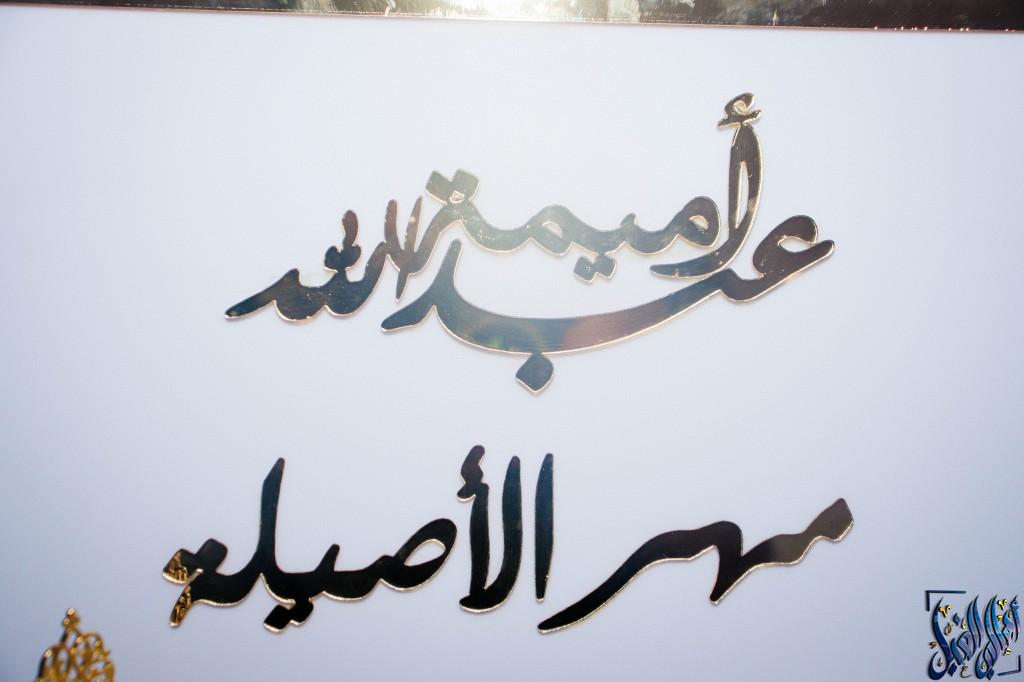 أميمة
عبد الله
مهر الأصيلة